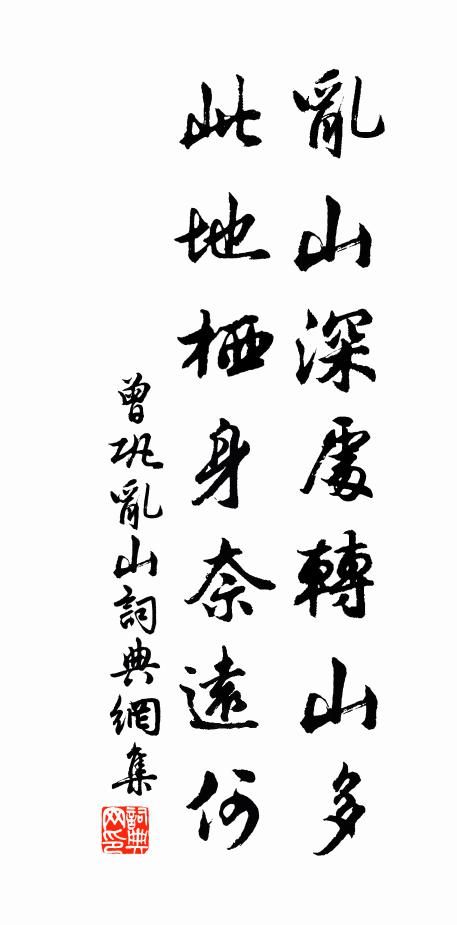 亂山深處轉山多
此地栖身奈遠何
曾巩亂山詞典網集
詞典网印